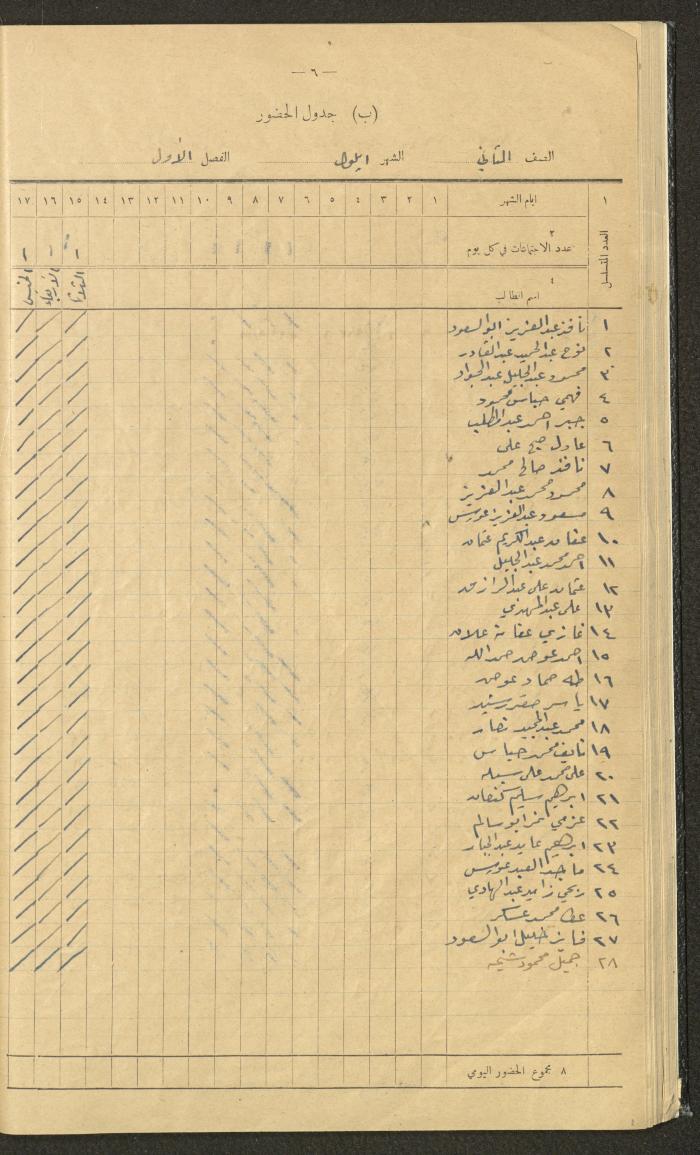 — ٦ —
(ب) جدول الحضور
الصف الثاني الشهر ايلول الفصل الأول
١ ايام الشهر ١ ٢ ٣ ٤ ٥ ٦ ٧ ٨ ٩ ١٠ ١١ ١٢ ١٣ ١٤ ١٥ ١٦ ١٧
العدد المتسلسل
٢
عدد الاجتماعات في كل يوم
٤
اسم الطالب
الثلاثا الأربعاء الخميس
١ نافذ عبد العزيز ابو السعود
٢ نوح عبد الحميد عبد القادر
٣ محمود عبد الجليل عبد الجواد
٤ فهمي حباس محمود
٥ جبر احمد عبد المطلب
٦ عادل علي
٧ نافذ صالح محمد
٨ محمود محمد عبد العزيز
٩ مسعود عبد العزيز عويس
١٠ عفان عبد الكريم عثمان
١١ احمد محمد عبد الجليل
١٢ عثمان علي عبد الرازق
١٣ علي عبد المهدي
١٤ غازي علان
١٥ احمد عوض حمدالله
١٦ طه حماد عوض
١٧ ياسر صقر رشيد
١٨ محمد عبد المجيد نصار
١٩ نايف محمد حباس
٢٠ علي محمد علي
٢١ ابرهيم سليم كنعان
٢٢ عزمي نمر ابو سالم
٢٣ ابرهيم عايد عبد الجبار
٢٤ ماجد العبد عويس
٢٥ ربحي زامير عبد الهادي
٢٦ عطا محمد عسكر
٢٧ فايز خليل ابو السعود
٢٨ جميل محمود
٨ مجموع الحضور اليومي